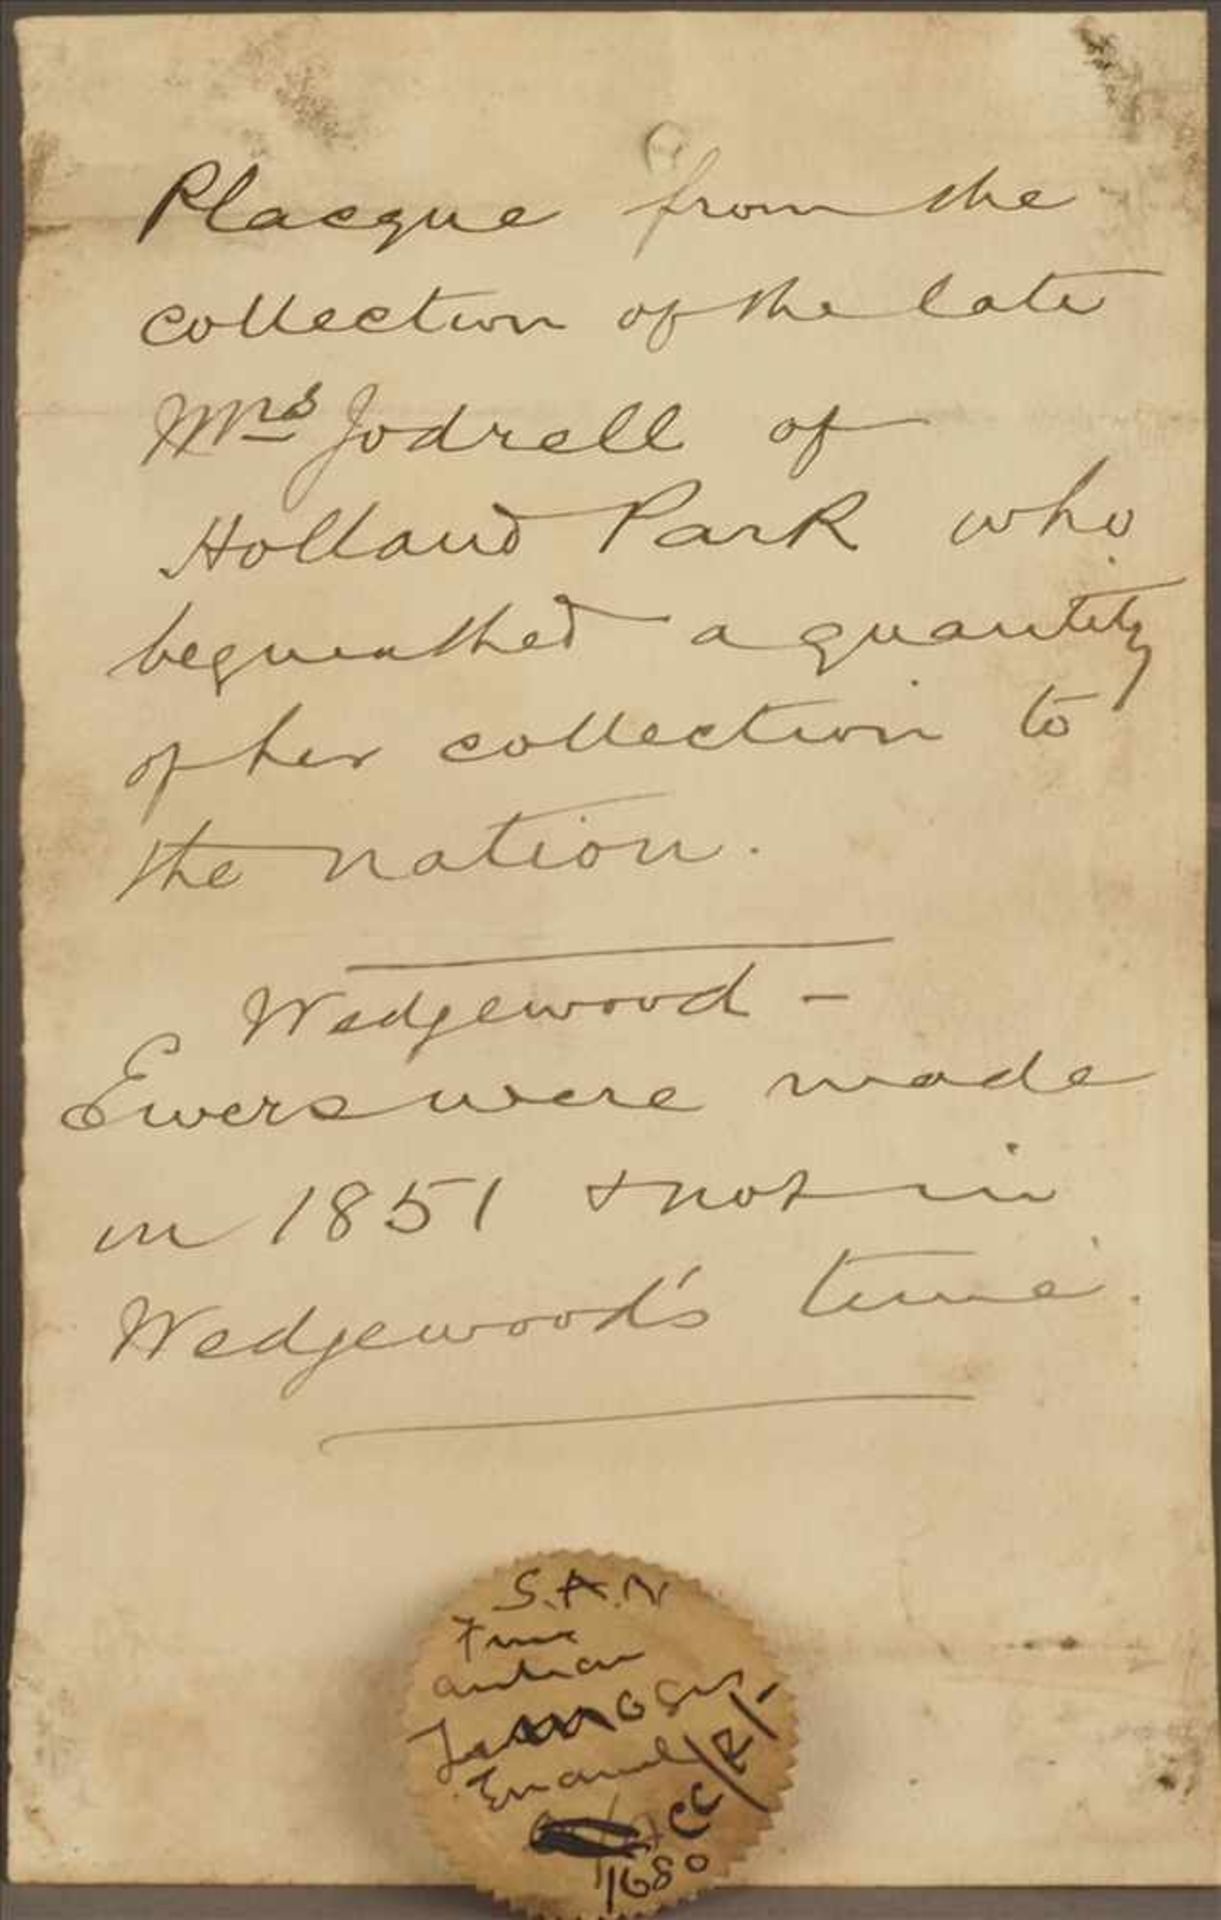 Placque from the
collection of the late
Mrs Jodrell of
Holland Park who
bequeathed a quantity
of her collection to
the nation.
Wedgewood -
Ewers were made
in 1851 & not in
Wedgewood's time.
S.A.N
Fine
antique
Limoges
Enamel
CC/R/-
1680